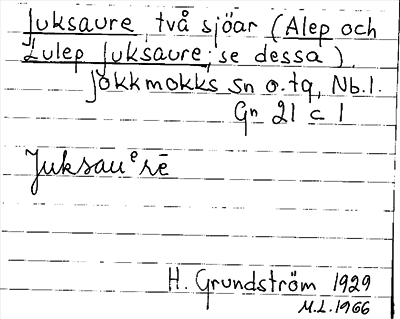 Juksaure, två sjöar (Alep och
Lulep Juksaure; se dessa).
Jokkmokks sn o. tg, Nb. l.
Gn 21 c 1
Juksauᵉrē
H. Grundström 1929
M.L. 1966